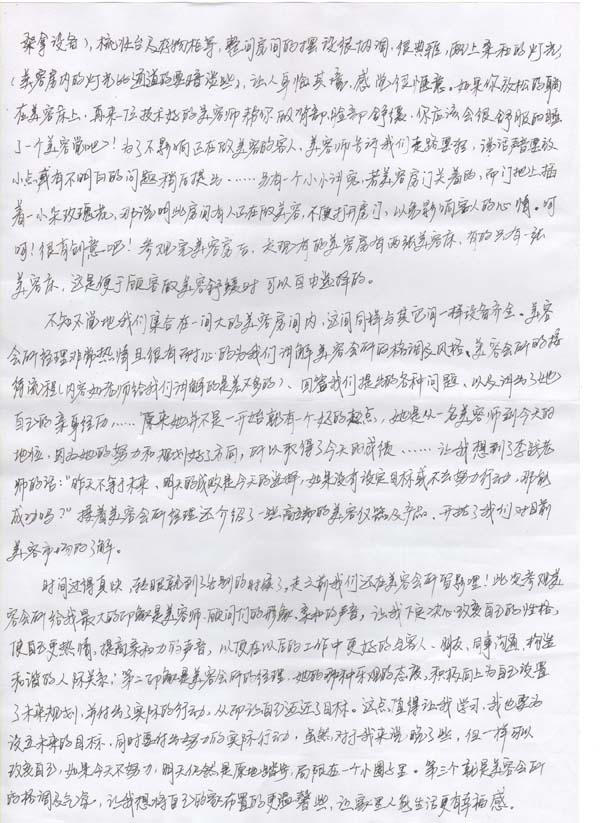 桑拿设备），梳妆台及衣物柜等，整间房间的摆设很协调，很典雅，配上柔和的灯光
（美容房内的灯光比通道的要暗淡些），让人身临其境，感觉很惬意。如果你放松的躺
在美容床上，再来一位技术好的美容师替你做背部、脸部舒缓，你应该会很舒服的睡
了一个美容觉吧！为了不影响正在做美容的客人，美容师告诉我们走路要轻，讲话声音要放
小点或有不明白的问题稍后提出……另有一个小小讲究，若美容房门关着的，而门地上插
着一小朵玫瑰花，那说明此房间有人正在做美容，不便打开房门，以免影响客人的心情。呵
呵！很有创意吧！参观完美容房后，发现有的美容房有两张美容床，有的只有一张
美容床，这是便于顾客做美容舒缓时可以自由选择的。
不知不觉地我们集合在一间大的美容房间内，这间同样与其它间一样设备齐全。美容
会所经理非常热情且很有耐心的为我们讲解美容会所的格调及风格、美容会所的接
待流程（内容如老师给我们讲解的是差不多的）、回答我们提出的各种问题，以及讲出了她
自己的亲身经历……原来她并不是一开始就有一个好的起点，她是从一名美容师到今天的
地位，因为她的努力和规划好了方向，所以取得了今天的成绩……让我想到了李老
师的话：“昨天不等于未来，明天的成败是今天的选择，如果没有设定目标或不去努力行动，那能
成功吗？”接着美容会所经理还介绍了一些高端的美容仪器及产品，开拓了我们对目前
美容市场的了解。
时间过得真快，转眼就到了告别的时候了，走之前我们还在美容会所留影哩！此次参观美
容会所给我最大的印象是美容师、顾问们的形象、亲和的声音，让我下定决心改变自己的性格，
使自己更热情，提高柔和力的声音，以便在以后的工作中更好的与客人、朋友、同事沟通，构造
和谐的人际关系；第二印象是美容会所的经理，她的那种乐观的态度，积极向上为自己设置
了未来规划，并付出了实际的行动，从而让自己迈进了目标。这点值得让我学习，我也要为
设立未来的目标，同时要付出努力的实际行动，虽然对于我来说晚了些，但一样可以
改变自己，如果今天不努力，明天仍然是原地踏步，局限在一个小圈子里。第三个就是美容会所
的格调及气氛，让我想将自己的家布置的更温馨些，让家里人觉生活更有幸福感。